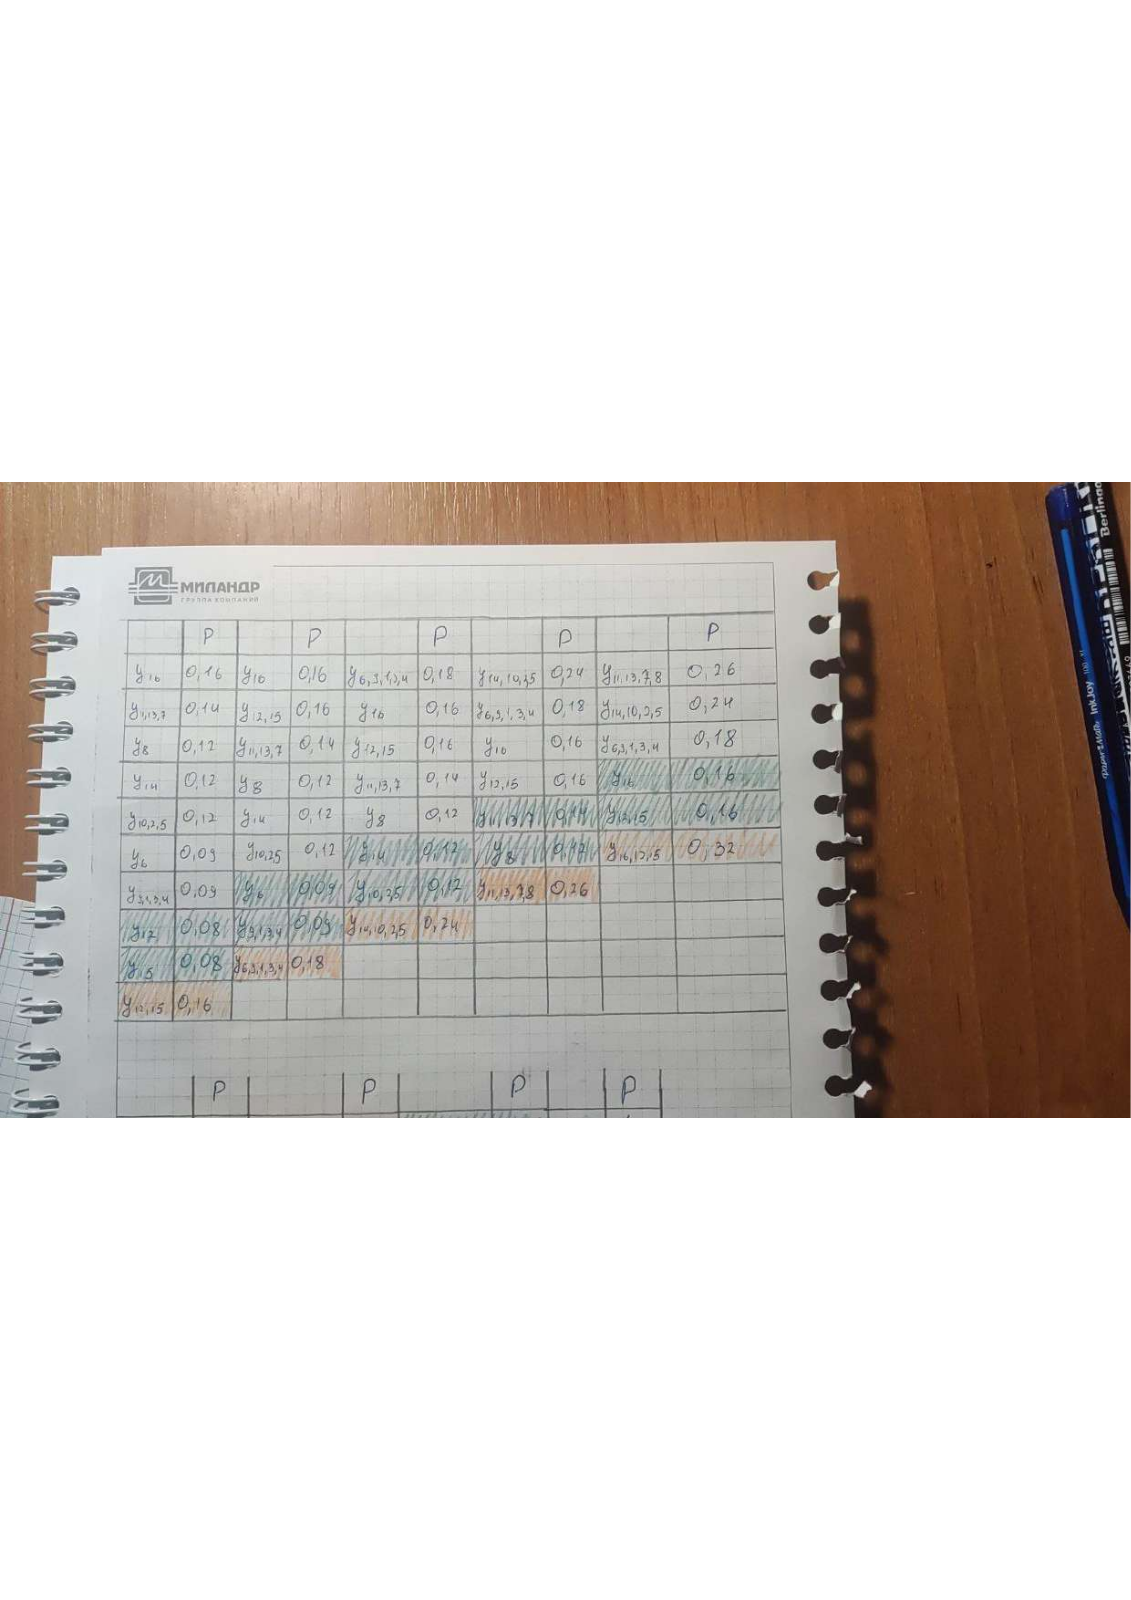 МИЛАНДР
ГРУППА КОМПАНИЙ
P P P P P
y16 0,16 y16 0,16 y6,9,1,3,4 0,18 y14,10,2,5 0,24 y11,13,7,8 0,26
y11,13,7 0,14 y12,15 0,16 y16 0,16 y6,9,1,3,4 0,18 y14,10,2,5 0,24
y8 0,12 y11,13,7 0,14 y12,15 0,16 y16 0,16 y6,9,1,3,4 0,18
y14 0,12 y8 0,12 y11,13,7 0,14 y12,15 0,16 y16 0,16
y10,2,5 0,12 y14 0,12 y8 0,12 y11,13,7 0,14 y12,15 0,16
y6 0,09 y10,2,5 0,12 y14 0,12 y8 0,12 y16,12,15 0,32
y9,1,3,4 0,09 y6 0,09 y10,2,5 0,12 y11,13,7,8 0,26
y12 0,08 y9,1,3,4 0,09 y14,10,2,5 0,24
y15 0,08 y6,9,1,3,4 0,18
y12,15 0,16
P P P P
Berlingo
InkJoy 100 XL
paper mate